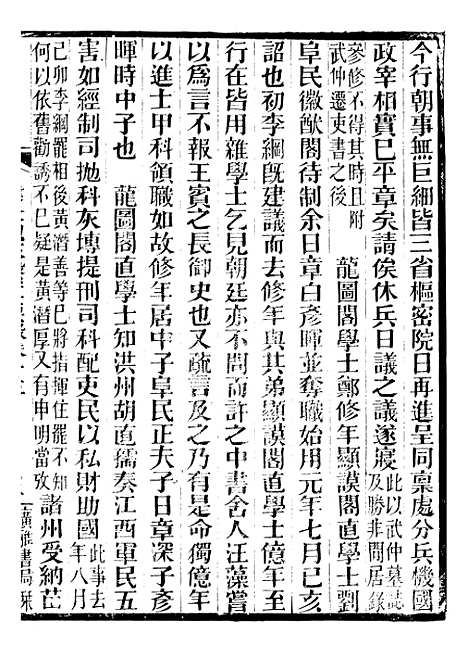 今行朝事無巨細皆三省樞密院日再進呈同稟處分兵機國
政宰相實已平章矣請俟休兵日議之議遂寢此以武仲墓誌及勝非閒居錄
參修不得其時且附武仲遷吏書之後　龍圖閣學士鄭修年顯謨閣直學士劉
阜民徽猷閣待制余日章白彥暉並奪職始用元年七月已亥
詔也初李綱旣建議而去修年與其弟顯謨閣直學士億年至
行在皆用雜學士乞見朝廷亦不問而許之中書舍人汪藻嘗
以爲言不報王賓之長御史也又疏言及之乃有是命獨億年
以進士甲科領職如故修年居中子阜民正夫子日章深子彥
暉時中子也　龍圖閣直學士知洪州胡直孺奏江西軍民五
害如經制司抛科灰塼提刑司科配吏民以私財助國此事去年八月
己卯李綱罷相後黃潛善等已將指揮住罷不知何以依舊勸誘不已疑是黃潛厚又有申明當攷　諸州受納苙
廣雅書局栞